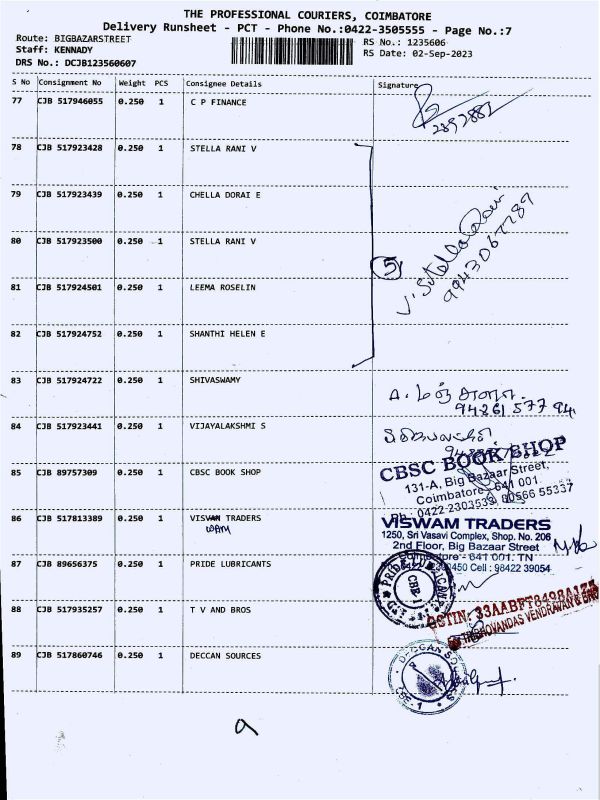 THE PROFESSIONAL COURIERS, COIMBATORE
Delivery Runsheet - PCT - Phone No.:0422-3505555 - Page No.:7
Route: BIGBAZARSTREET
RS No.: 1235606
Staff: KENNADY
RS Date: 02-Sep-2023
DRS No.: DCJB123560607
S No Consignment No Weight PCS Consignee Details Signature
77 CJB 517946055 0.250 1 C P FINANCE
2892882
78 CJB 517923428 0.250 1 STELLA RANI V
79 CJB 517923439 0.250 1 CHELLA DORAI E
80 CJB 517923500 0.250 1 STELLA RANI V
5
9943067289
81 CJB 517924501 0.250 1 LEEMA ROSELIN
82 CJB 517924752 0.250 1 SHANTHI HELEN E
83 CJB 517924722 0.250 1 SHIVASWAMY
94261 577 94
84 CJB 517923441 0.250 1 VIJAYALAKSHMI S
85 CJB 89757309 0.250 1 CBSC BOOK SHOP
CBSC BOOK SHOP
131-A, Big Bazaar Street,
Coimbatore - 641 001
Ph : 0422 2303533, 80566 55337
86 CJB 517813389 0.250 1 VISWAN TRADERS
WAM
VISWAM TRADERS
1250, Sri Vasavi Complex, Shop. No. 206
2nd Floor, Big Bazaar Street
Coimbatore - 641 001. TN
Cell : 98422 39054
87 CJB 89656375 1 0.250 1 PRIDE LUBRICANTS
CBE
88 CJB 517935257 0.250 1 T V AND BROS
89 CJB 517860746 0.250 1 DECCAN SOURCES
DECCAN SOURCES
CBE - 1
a